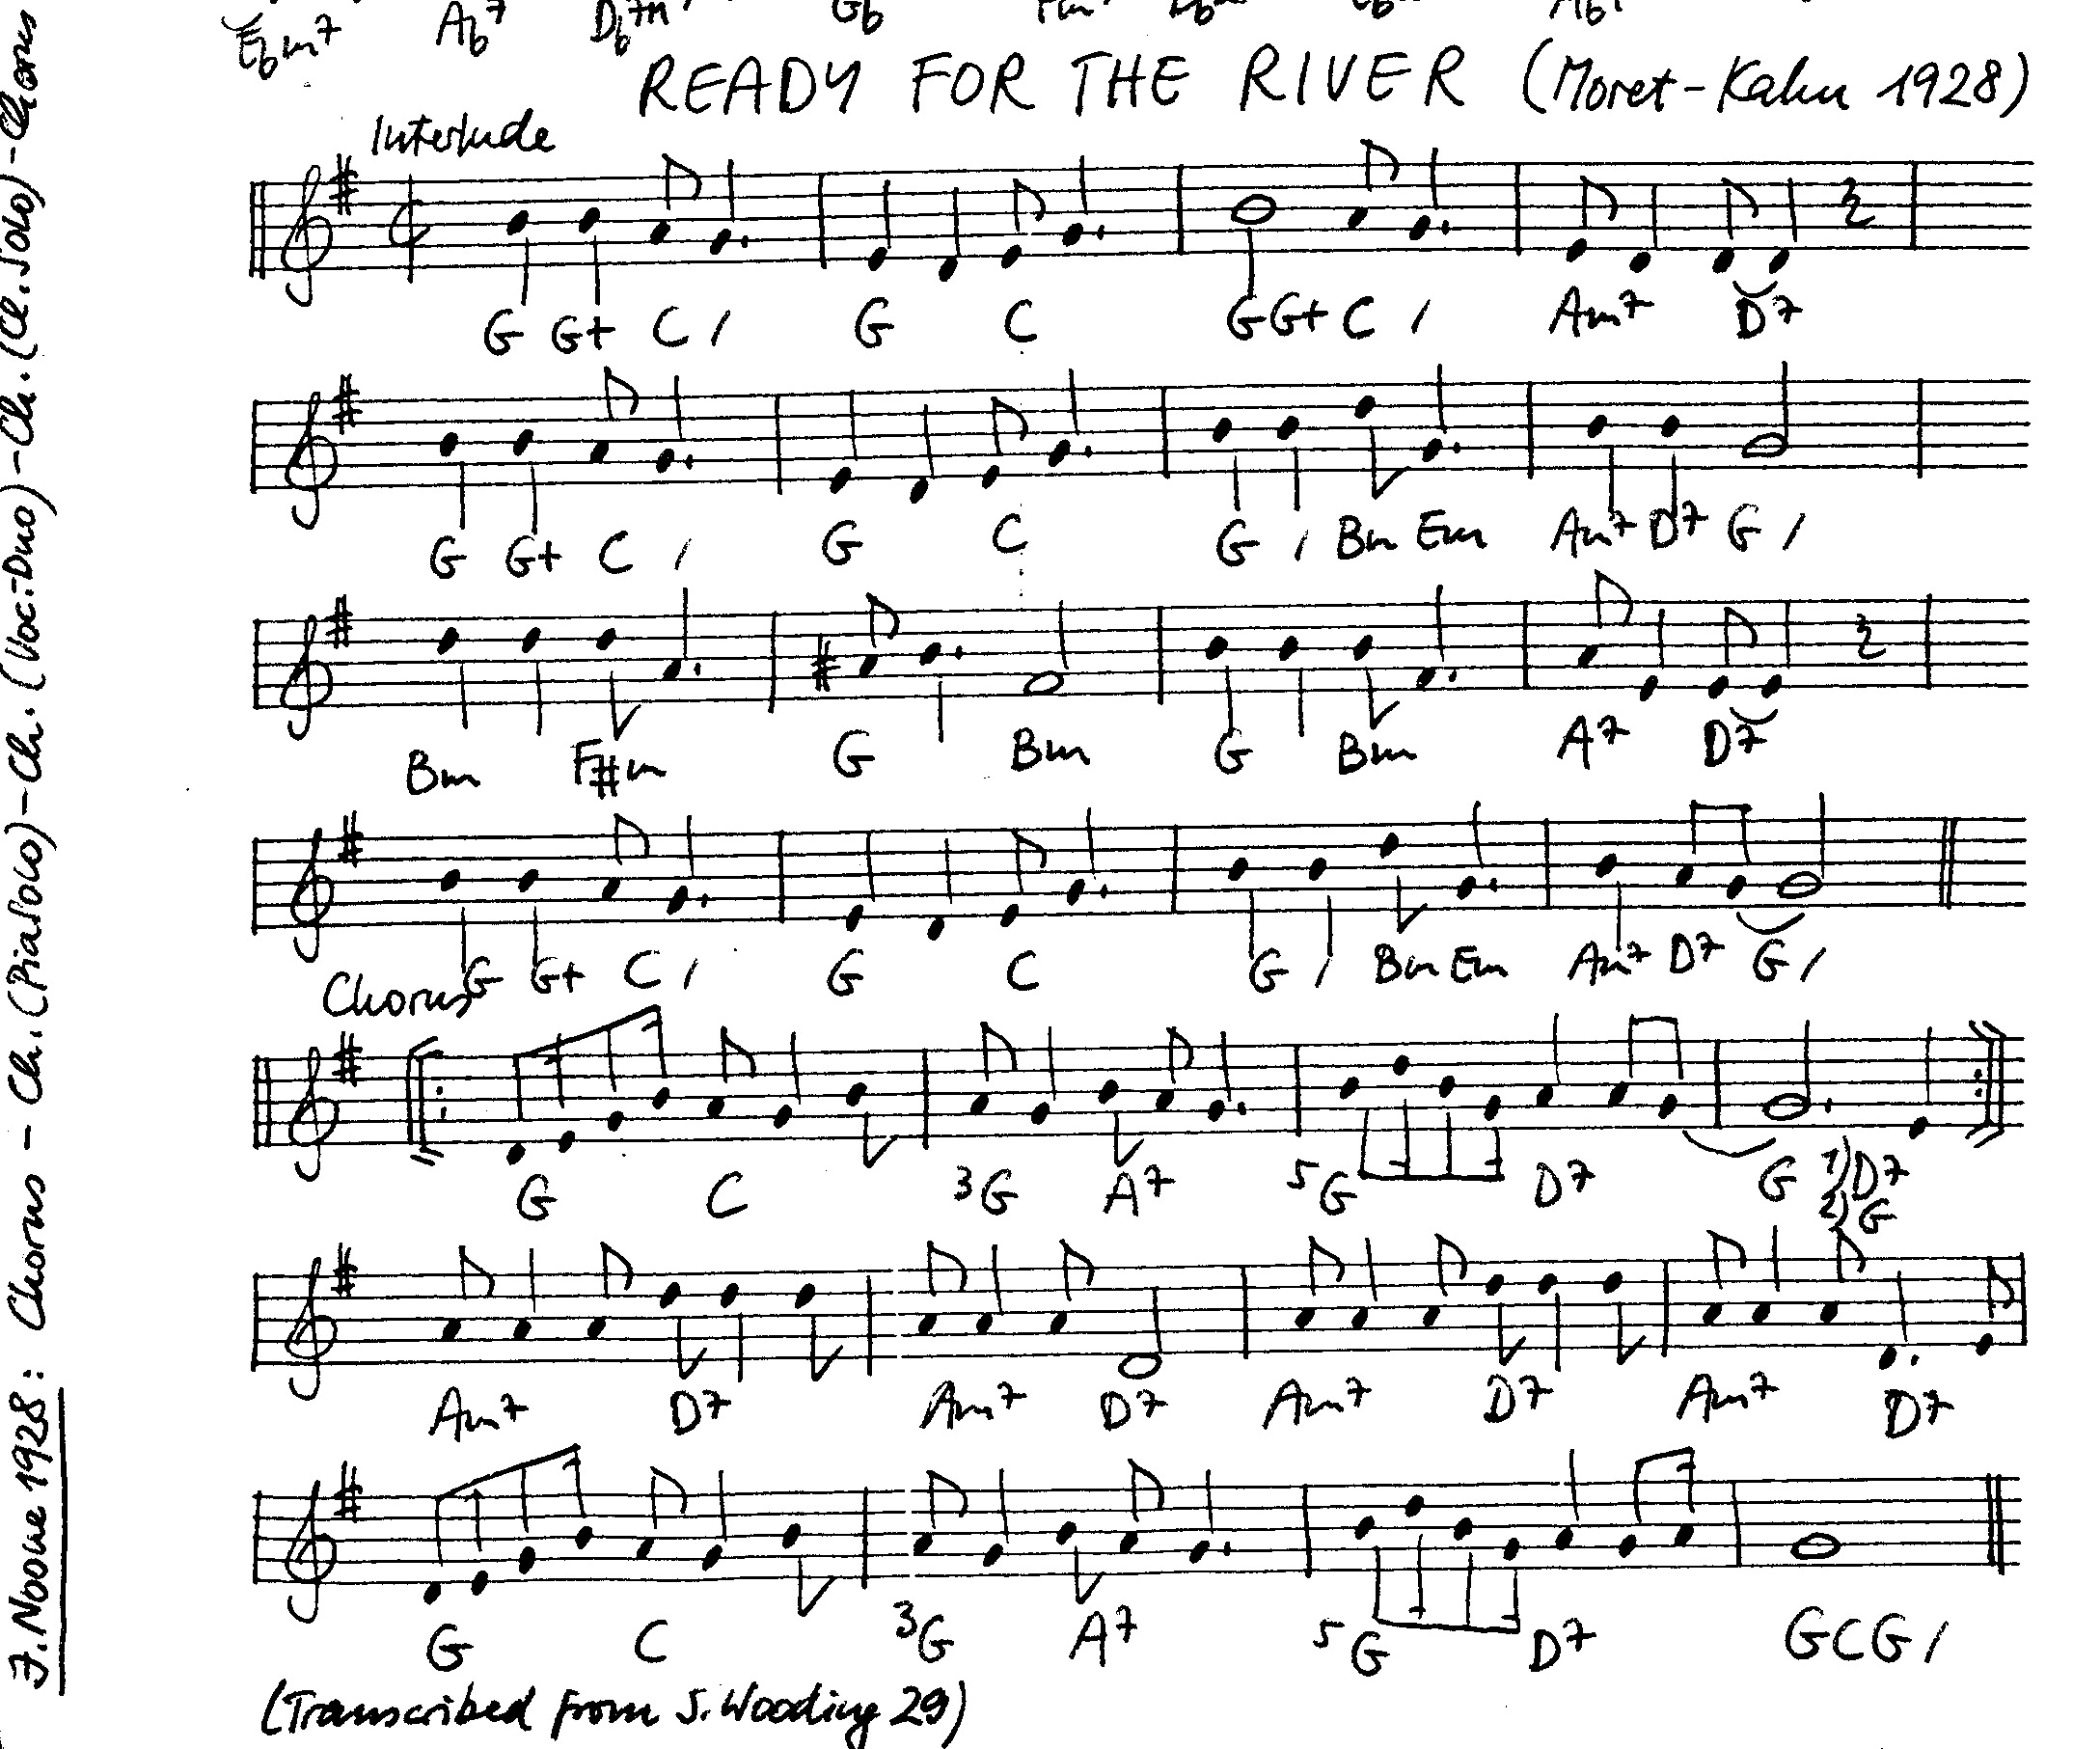 Ebm7 Ab7 Db7 Gb
READY FOR THE RIVER (Moret-Kahn 1928)
Interlude
G G+ C / G C G G+ C / Am7 D7
G G+ C / G C G / Bm Em Am7 D7 G /
Bm F#m G Bm G Bm A7 D7
G G+ C / G C G / Bm Em Am7 D7 G /
Chorus
G C 3G A7 5G D7 G 1) D7
2) G
Am7 D7 Am7 D7 Am7 D7 Am7 D7
G C 3G A7 5G D7 G C G /
(Transcribed from S. Wooding 29)
J. Noone 1928: Chorus - Ch. (Piasolo) - Ch. (Voc.-Duo) - Ch. (Cl. Solo) - Chorus